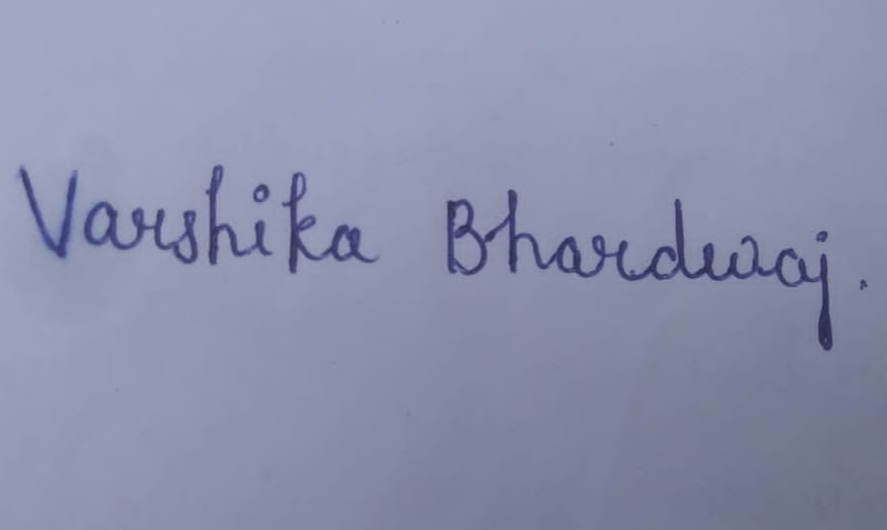 Varshika Bhardwaj.